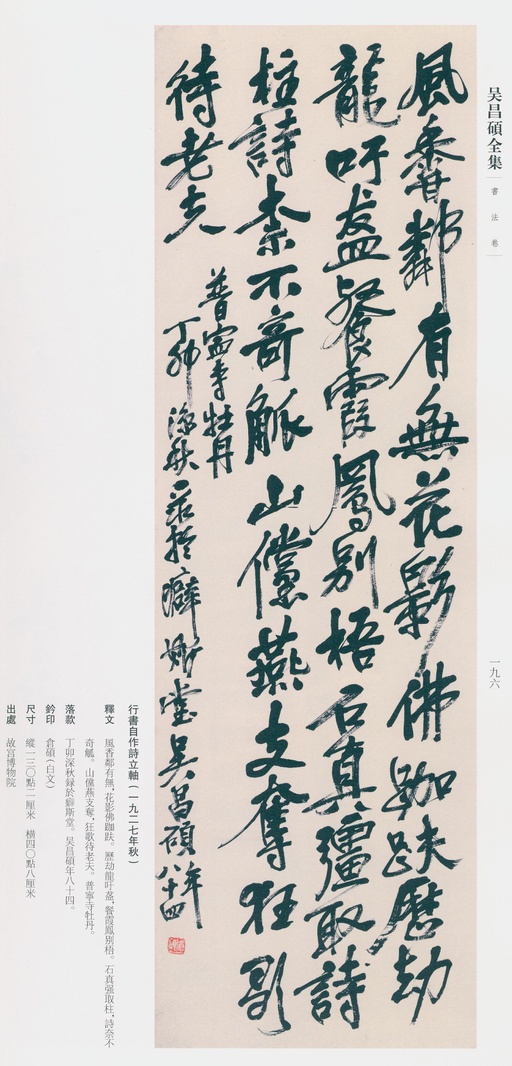 吴昌碩全集
書法卷
一九六
風香鄰有無花影佛跏趺歷劫
龍吁盋餐霞鳳别梧石真彊取
柱詩柰不奇觚山儻燕支奪狂歌
待老夫
普寧寺牡丹
丁卯深秋录於癖斯堂吴昌碩年八十四
行書自作詩立軸（一九二七年秋）
釋文 風香鄰有無，花影佛跏趺。歷劫龍吁盋，餐霞鳳别梧。石真强取柱，詩奈不
奇觚。山儻燕支奪，狂歌待老夫。普寧寺牡丹。
落款 丁卯深秋録於癖斯堂。吴昌碩年八十四。
鈐印 倉碩（白文）
尺寸 縱一三〇點二厘米 横四〇點八厘米
出處 故宫博物院